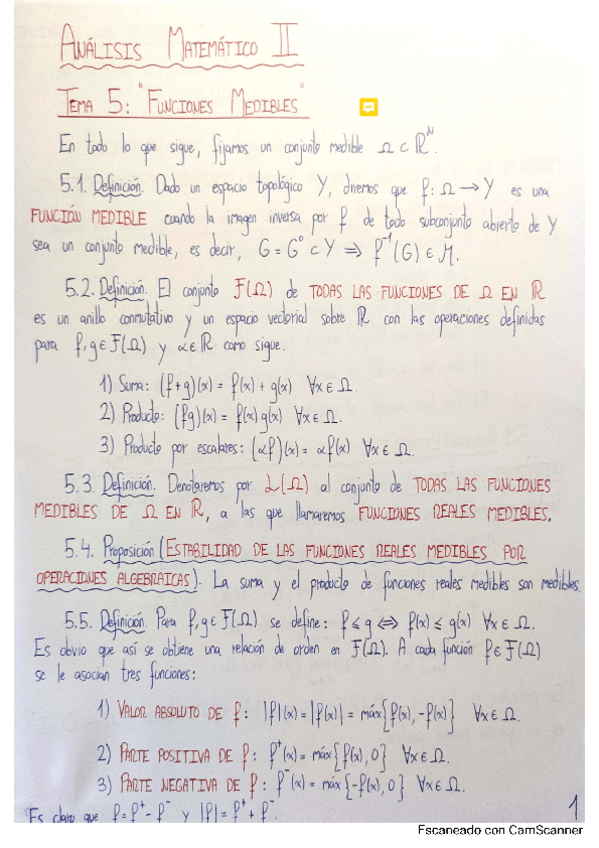 ANÁLISIS MATEMÁTICO II
TEMA 5: "FUNCIONES MEDIBLES"
En todo lo que sigue, fijamos un conjunto medible Ω ⊂ ℝᴺ.
5.1. Definición. Dado un espacio topológico Y, diremos que f: Ω → Y es una
FUNCIÓN MEDIBLE cuando la imagen inversa por f de todo subconjunto abierto de Y
sea un conjunto medible, es decir, G = G° ⊂ Y ⇒ f⁻¹(G) ∈ M.
5.2. Definición. El conjunto F(Ω) de TODAS LAS FUNCIONES DE Ω EN ℝ
es un anillo conmutativo y un espacio vectorial sobre ℝ con las operaciones definidas
para f, g ∈ F(Ω) y α ∈ ℝ como sigue.
1) Suma: (f+g)(x) = f(x) + g(x) ∀x ∈ Ω.
2) Producto: (fg)(x) = f(x)g(x) ∀x ∈ Ω.
3) Producto por escalares: (αf)(x) = αf(x) ∀x ∈ Ω.
5.3. Definición. Denotaremos por L(Ω) al conjunto de TODAS LAS FUNCIONES
MEDIBLES DE Ω EN ℝ, a las que llamaremos FUNCIONES REALES MEDIBLES.
5.4. Proposición (ESTABILIDAD DE LAS FUNCIONES REALES MEDIBLES POR
OPERACIONES ALGEBRAICAS). La suma y el producto de funciones reales medibles son medibles.
5.5. Definición. Para f, g ∈ F(Ω) se define: f ≤ g ⇔ f(x) ≤ g(x) ∀x ∈ Ω.
Es obvio que así se obtiene una relación de orden en F(Ω). A cada función f ∈ F(Ω)
se le asocian tres funciones:
1) VALOR ABSOLUTO DE f: |f|(x) = |f(x)| = máx{f(x), -f(x)} ∀x ∈ Ω.
2) PARTE POSITIVA DE f: f⁺(x) = máx{f(x), 0} ∀x ∈ Ω.
3) PARTE NEGATIVA DE f: f⁻(x) = máx{-f(x), 0} ∀x ∈ Ω.
Es claro que f = f⁺ - f⁻ y |f| = f⁺ + f⁻.
1
Escaneado con CamScanner